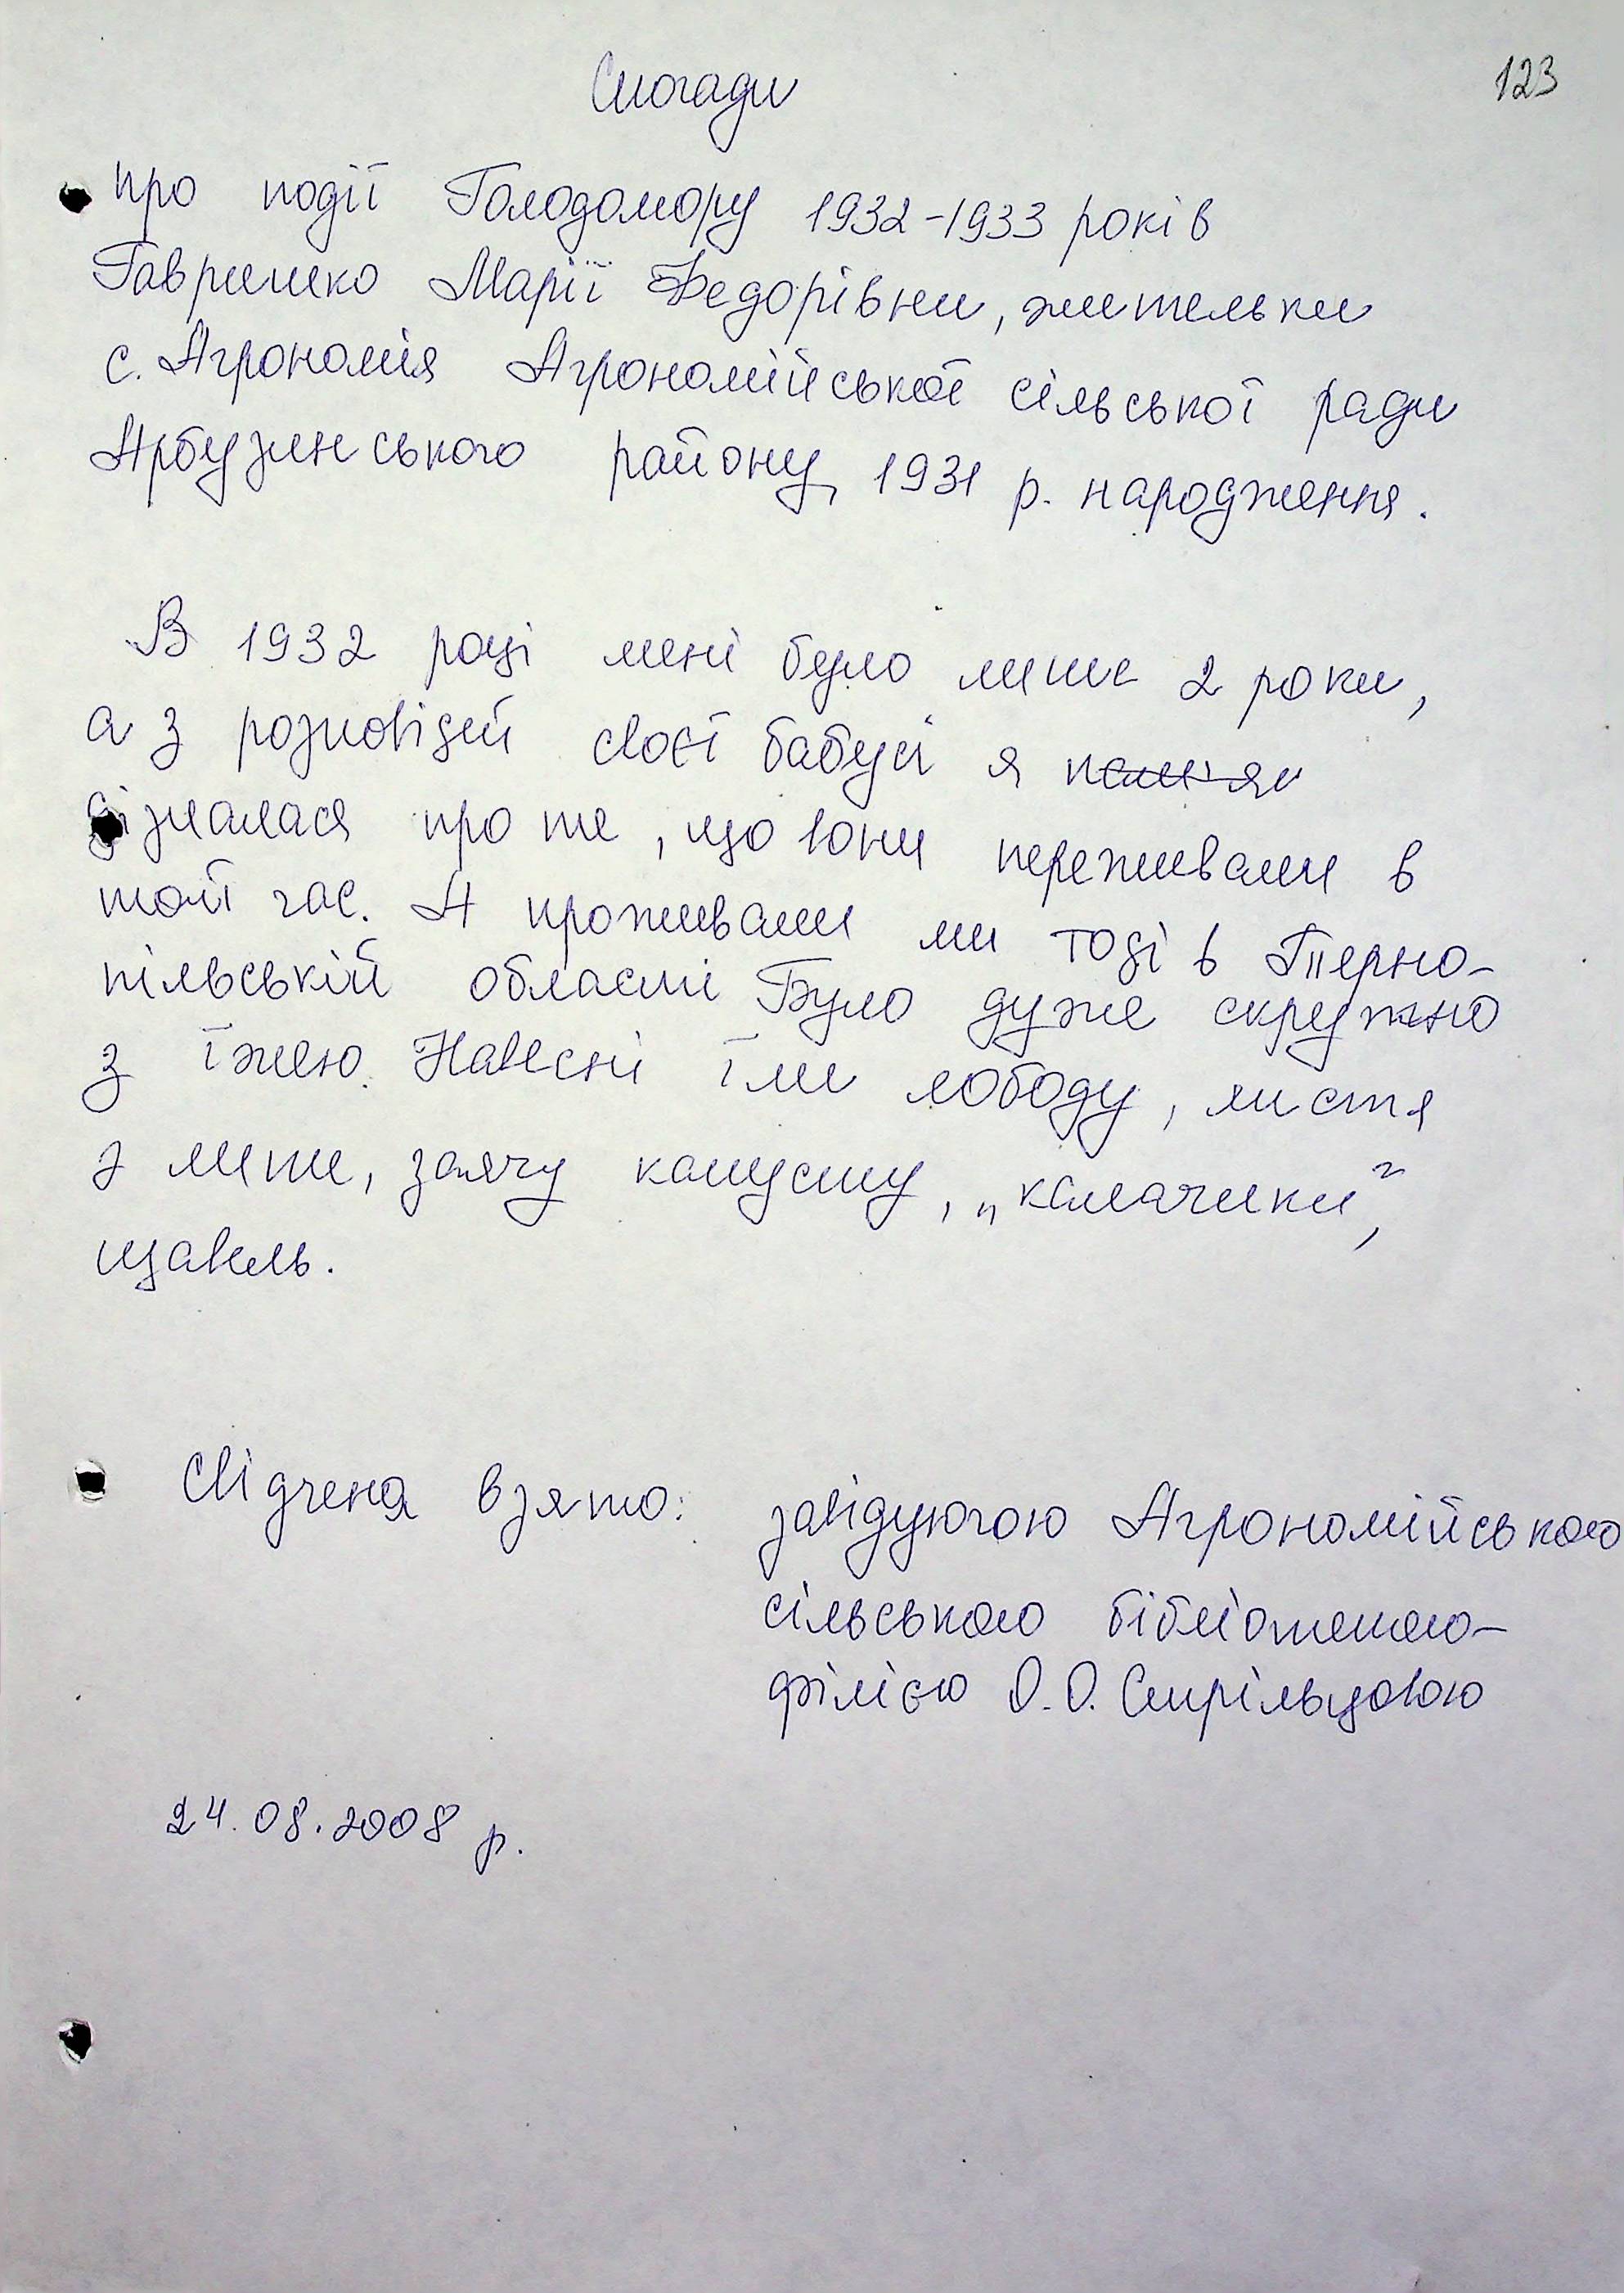 123
Спогади
про події Голодомору 1932-1933 років
Гавришко Марії Федорівни, жительки
с. Агрономія Агрономійської сільської ради
Арбузинського району, 1931 р. народження.
В 1932 році мені було лише 2 роки,
а з розповідей своєї бабусі я
дізналася про те, що вони переживали в
той час. А проживали ми тоді в Терно-
пільській області Було дуже скрутно
з їжею. Навесні їли лободу, листя
з липи, заячу капусту, „калачики",
щавель.
Свідчення взято: завідуючою Агрономійською
сільською бібліотекою-
філією О.О. Стрільцовою
24.08.2008 р.